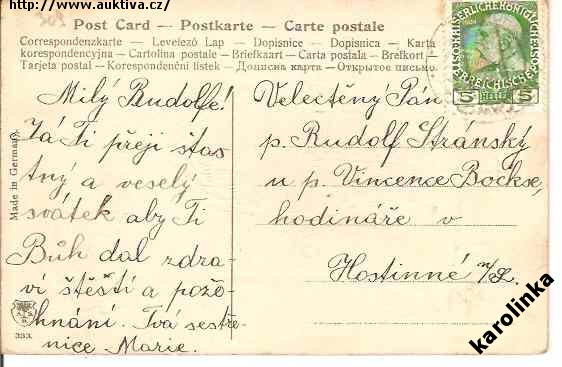 http://www.auktiva.cz/
309
Post Card — Postkarte — Carte postale
Correspondenzkarte — Levelező Lap — Dopisnice — Dopisnica — Karta
korespondencyjna — Cartolina postale — Briefkaart — Carta postala — Brefkort —
Tarjeta postal — Korespondenční lístek — Дописна карта — Открытое письмо.
Milý Rudolfe!
Já Ti přeji šťas
tný a veselý
svátek aby Ti
Bůh dal zdra-
ví štěští a požo-
hnání. Tvá sestře-
nice Marie.
Velectěný Pán
p. Rudolf Stránský
u p. Vincence Bockse,
hodináře v
Hostinné n/L.
5 HELLER 5
Made in Germany.
333.
karolinka